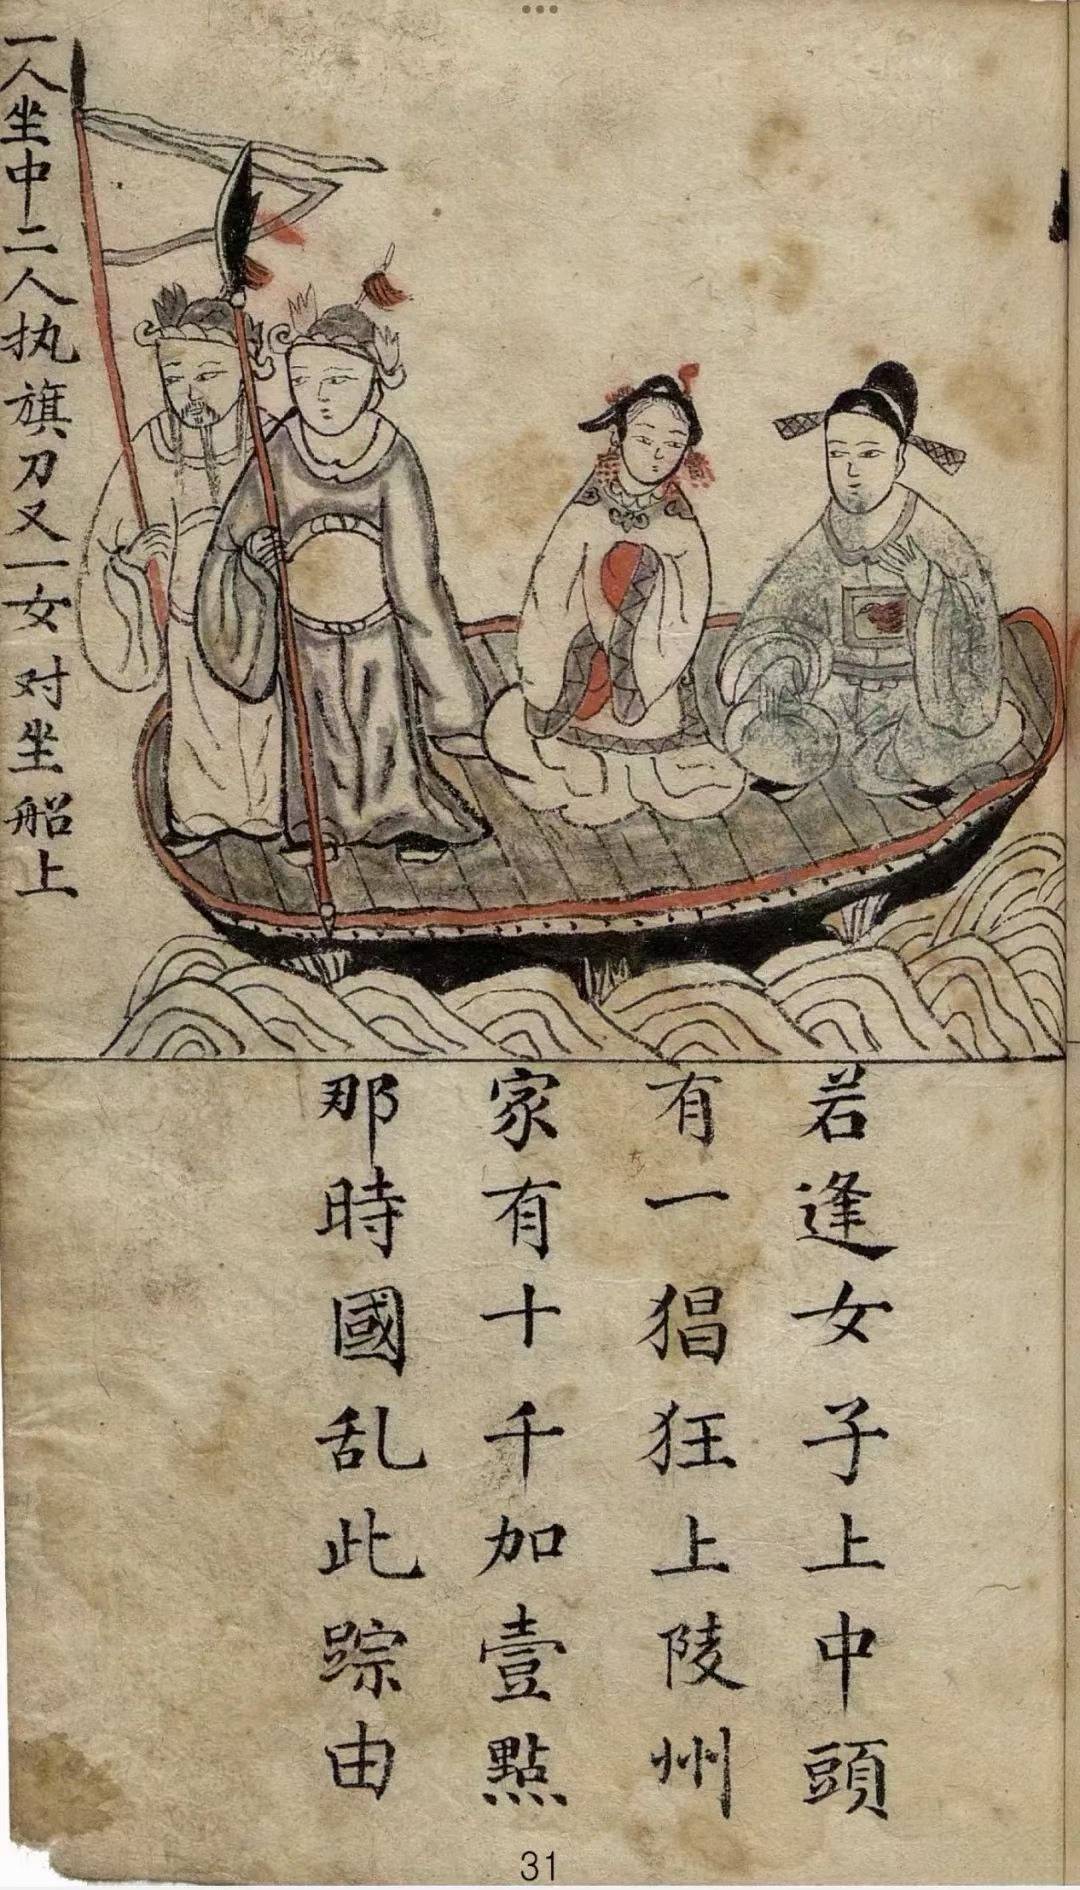 一人坐中二人执旗刀又一女对坐船上
若逢女子上中頭
有一猖狂上陵州
家有十千加壹點
那時國乱此踪由
31